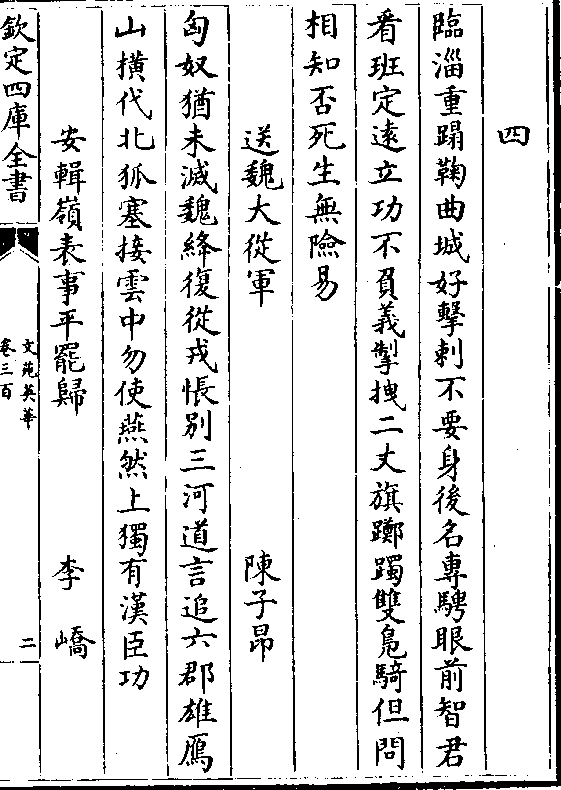 四
臨淄重蹋鞠曲城好擊刺不要身後名專騁眼前智君
看班定遠立功不負義掣拽二丈旗躑躅雙鳬騎但問
相知否死生無險易
送魏大從軍 陳子昂
匈奴猶未滅魏絳復從戎悵別三河道言追六郡雄鴈
山橫代北狐塞接雲中勿使燕然上獨有漢臣功
安輯嶺表事平罷歸 李嶠
欽定四庫全書
文苑英華
卷三百
二